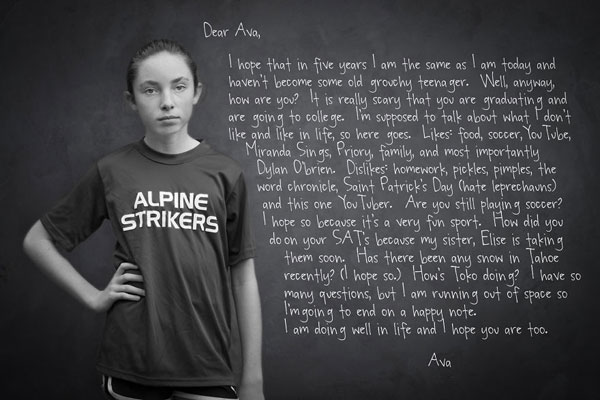 Dear Ava,
I hope that in five years I am the same as I am today and
haven't become some old grouchy teenager. Well, anyway,
how are you? It is really scary that you are graduating and
are going to college. I'm supposed to talk about what I don't
like and like in life, so here goes. Likes: food, soccer, YouTube,
Miranda Sings, Priory, family, and most importantly
Dylan O'brien. Dislikes: homework, pickles, pimples, the
word chronicle, Saint Patrick's Day (hate leprechauns)
and this one YouTuber. Are you still playing soccer?
I hope so because it's a very fun sport. How did you
do on your SAT's because my sister, Elise is taking
them soon. Has there been any snow in Tahoe
recently? (I hope so.) How's Toko doing? I have so
many questions, but I am running out of space so
I'm going to end on a happy note.
I am doing well in life and I hope you are too.
Ava
ALPINE
STRIKERS